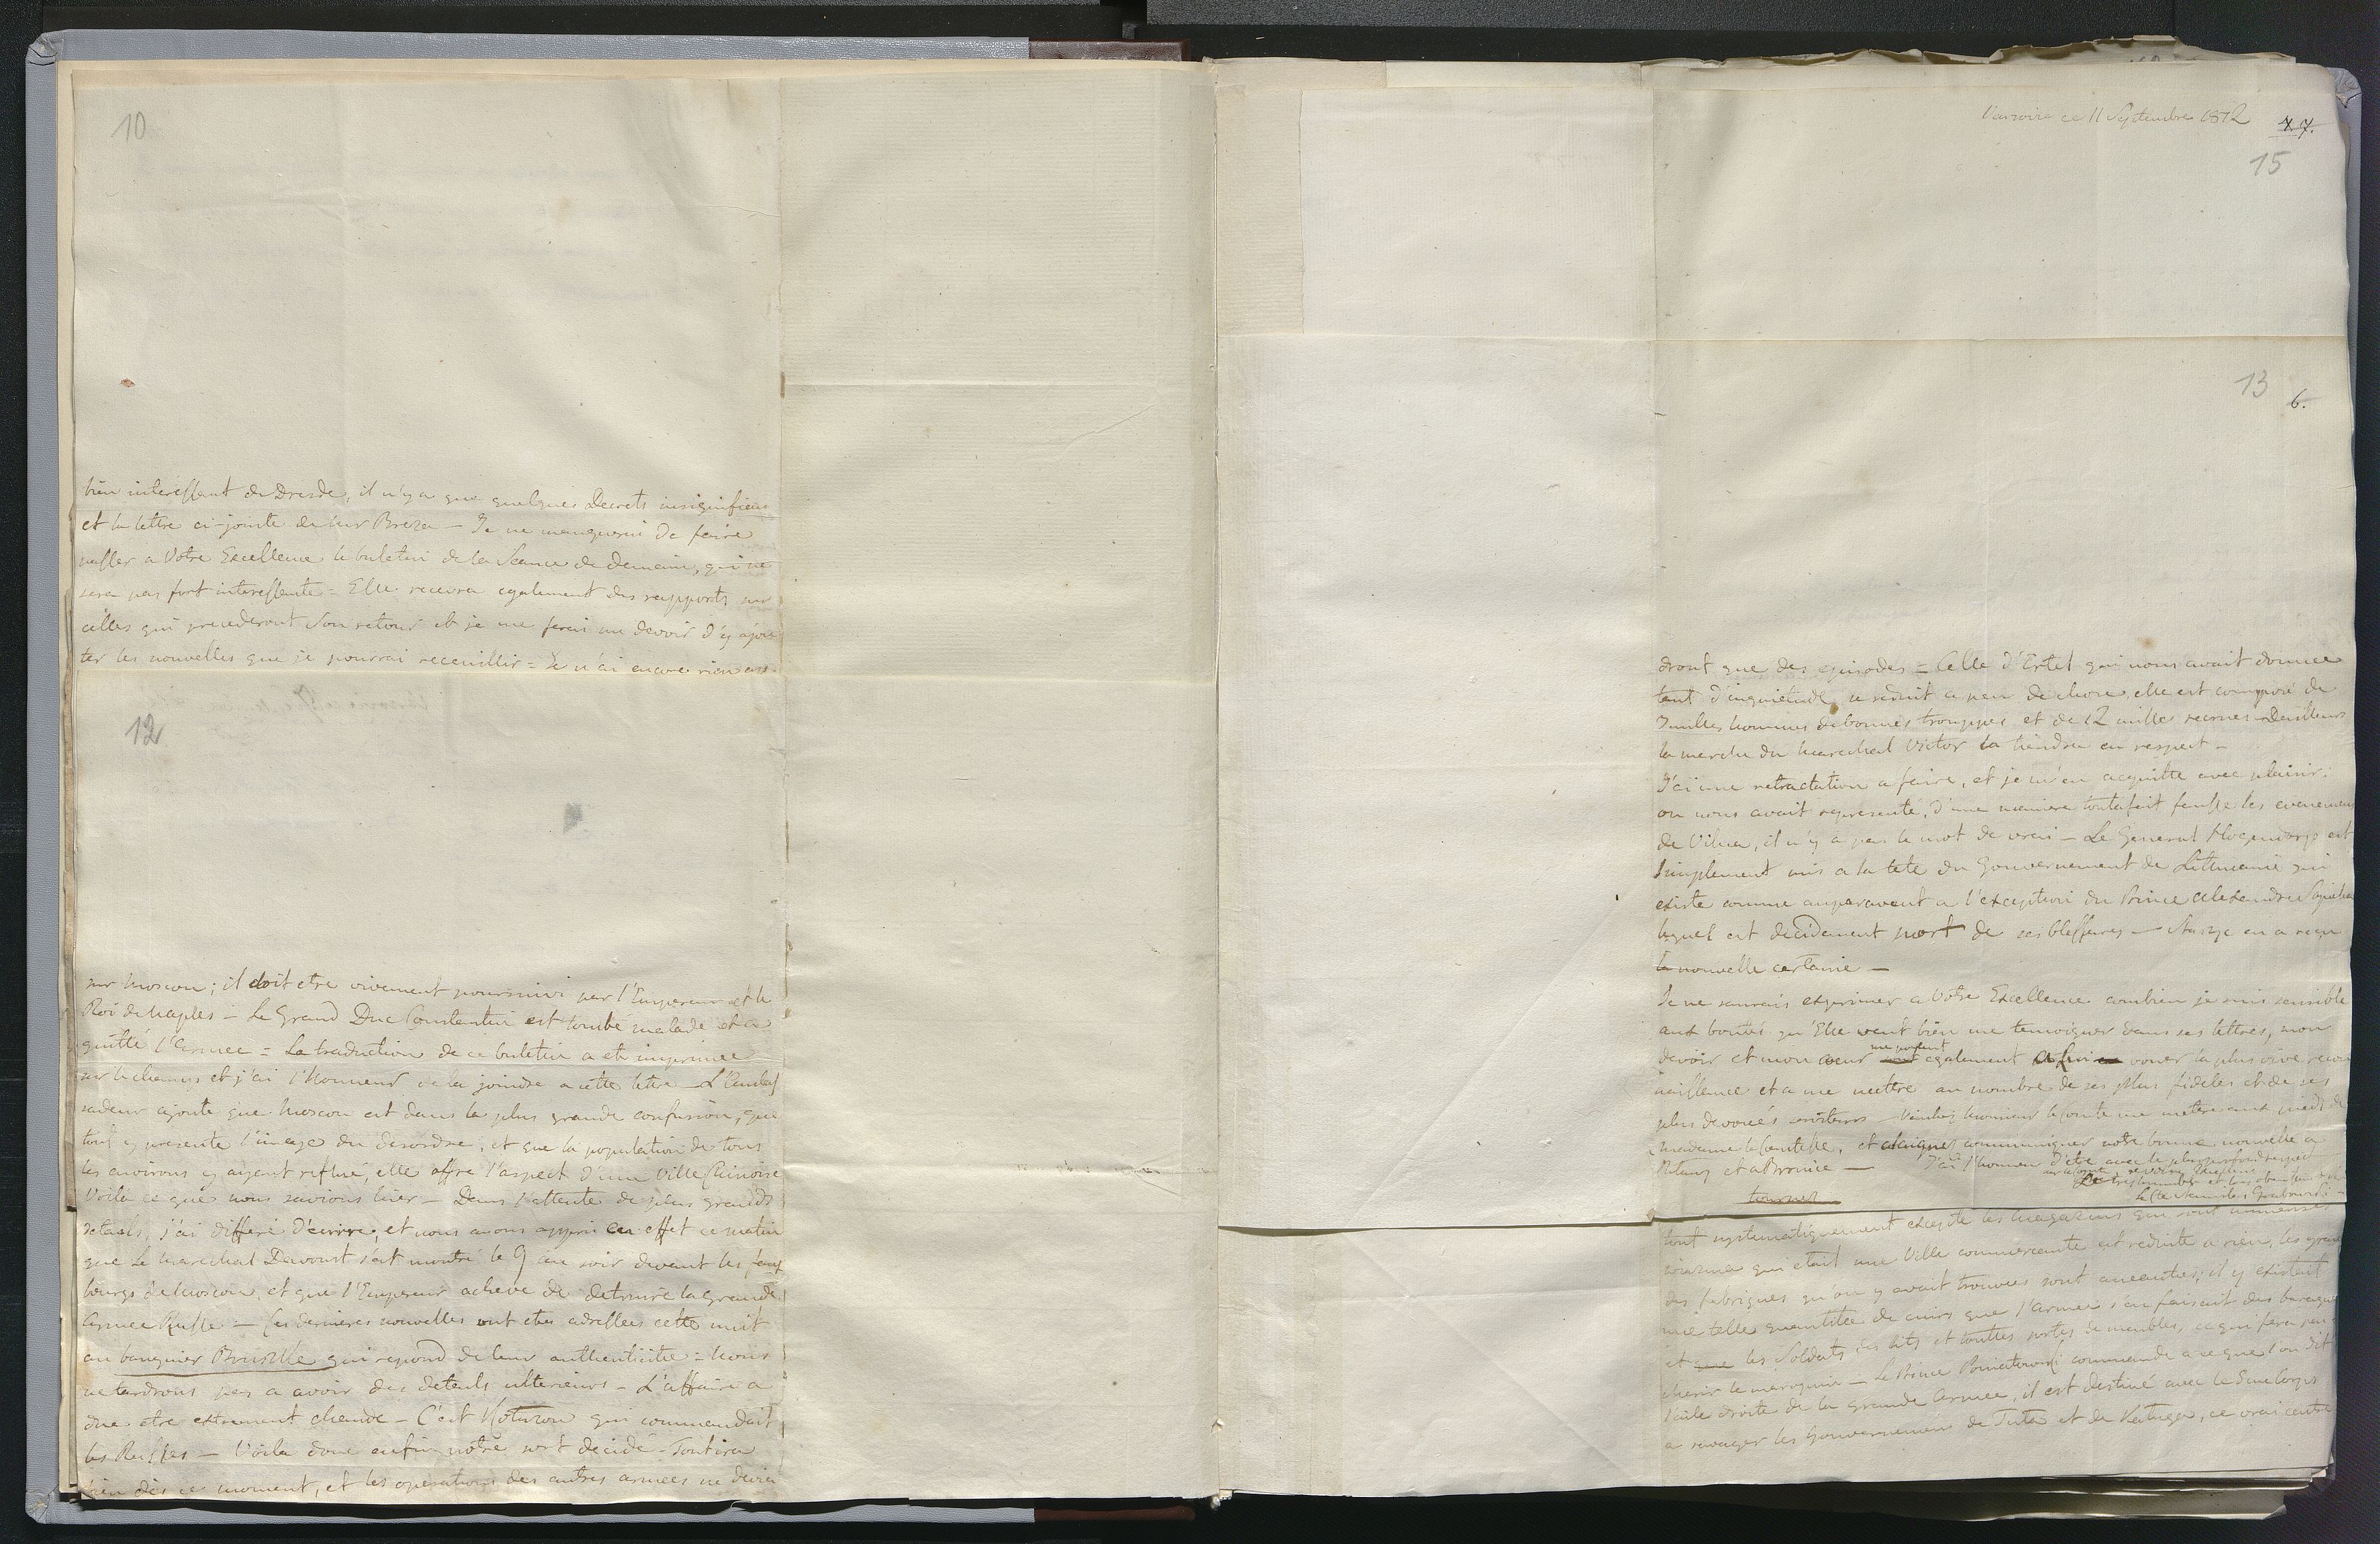 10
bien interessant de Dresde, il n'y a que quelques Decrets insignifians
et la lettre ci-jointe de Mr Breza — Je ne manquerai de faire
passer a Votre Excellence le buletin de la Seance de demain, qui ne
sera pas fort interessante = Elle recevra egalement des rapports sur
celles qui precederont Son retour et je me ferai un devoir d'y ajou-
ter les nouvelles que je pourrai receuillir = Je n'ai encore rien
12
sur Moscou; il doit etre vivement poursuivi par l'Empereur et le
Roi de Naples — Le Grand Duc Constantin est tombé malade et a
quitté l'Armee = La traduction de ce buletin a ete imprimee
sur le champs et j'ai l'honneur de la joindre a cette lettre — L'Ambas
sadeur ajoute que Moscou est dans la plus grande confusion, que
tout y presente l'image du desordre, et que la population de tous
les environs y ayant reflué, elle offre l'aspect d'une Ville Chinoise
Voila ce que nous savions hier — Dans l'attente de plus grands
details, j'ai differé d'ecrire; et nous avons appris en effet ce matin
que le Marechal Davoust s'est montré le 9 au soir devant les faux
bourgs de Moscou, et que l'Empereur acheve de detruire la grande
Armee Russe — Ces dernieres nouvelles ont etes adressées cette nuit
au banquier qui repond de leur authenticitée = Nous
ne tardrons pas a avoir des details ulterieurs — L'affaire a
due etre extremement chaude — C'est Kotuzow qui commandait
les Russes — Voila donc enfin notre sort decidé — Tout ira
bien dès ce moment, et les operations des autres armees ne devien
Varsovie ce 11 Septembre 1812
7.
15
13
6.
dront que des episodes = Celle d'Ertel qui nous avait donnee
tant d'inquietude, se reduit a peu de chose, elle est composé de
3 milles hommes de bonnes trouppes et de 12 milles recrues — Dailleurs
la marche du Marechal Victor la tiendra en respect —
J'ai une retractation a faire, et je m'en acquitte avec plaisir:
on nous avait representé d'une maniere toutafait fausse les evenemens
de Vilna, il n'y a pas le mot de vrai — Le General Hogendorp est
simplement mis a la tete du Gouvernement de Lithuanie qui
existe comme auparavant a l'exception du Prince Alexandre Sapieha
lequel est decidement mort de ses blessures — en a reçu
la nouvelle certaine —
Je ne saurais exprimer a Votre Excellence combien je suis sensible
aux bontés qu'Elle veut bien me temoigner dans ses lettres, mon
devoir et mon coeur me portent egalement a lui vouer la plus vive recon
naissance et a me mettre au nombre de ses plus fideles et de ses
plus devoués — Veuillez Monsieur le Comte me mettre aux pieds de
Madame la Comtesse, et daignez communiquer notre bonne nouvelle a
— J'ai l'honneur d'etre avec le plus profond respect
Le tres humble et tres obeissant
tournez
tout systematiquement excepte les magazins qui sont immenses
qui etait une Ville commercante est reduite a rien, les grandes
des fabriques qu'on y avait trouvees sont aneanties; il y existait
une telle quantitée de cuirs que l'armee s'en faisait des baraques
et les Soldats des lits et touttes sortes de meubles, ce qui fera ren
cherir le maroquin — Le Prince Poniatowski commande a ce que l'on dit
l'aile droite de la grande Armee, il est destiné avec le 5me Corps
a ravager les Gouvernemens de Tula et de Kaluga, ce vrai centre